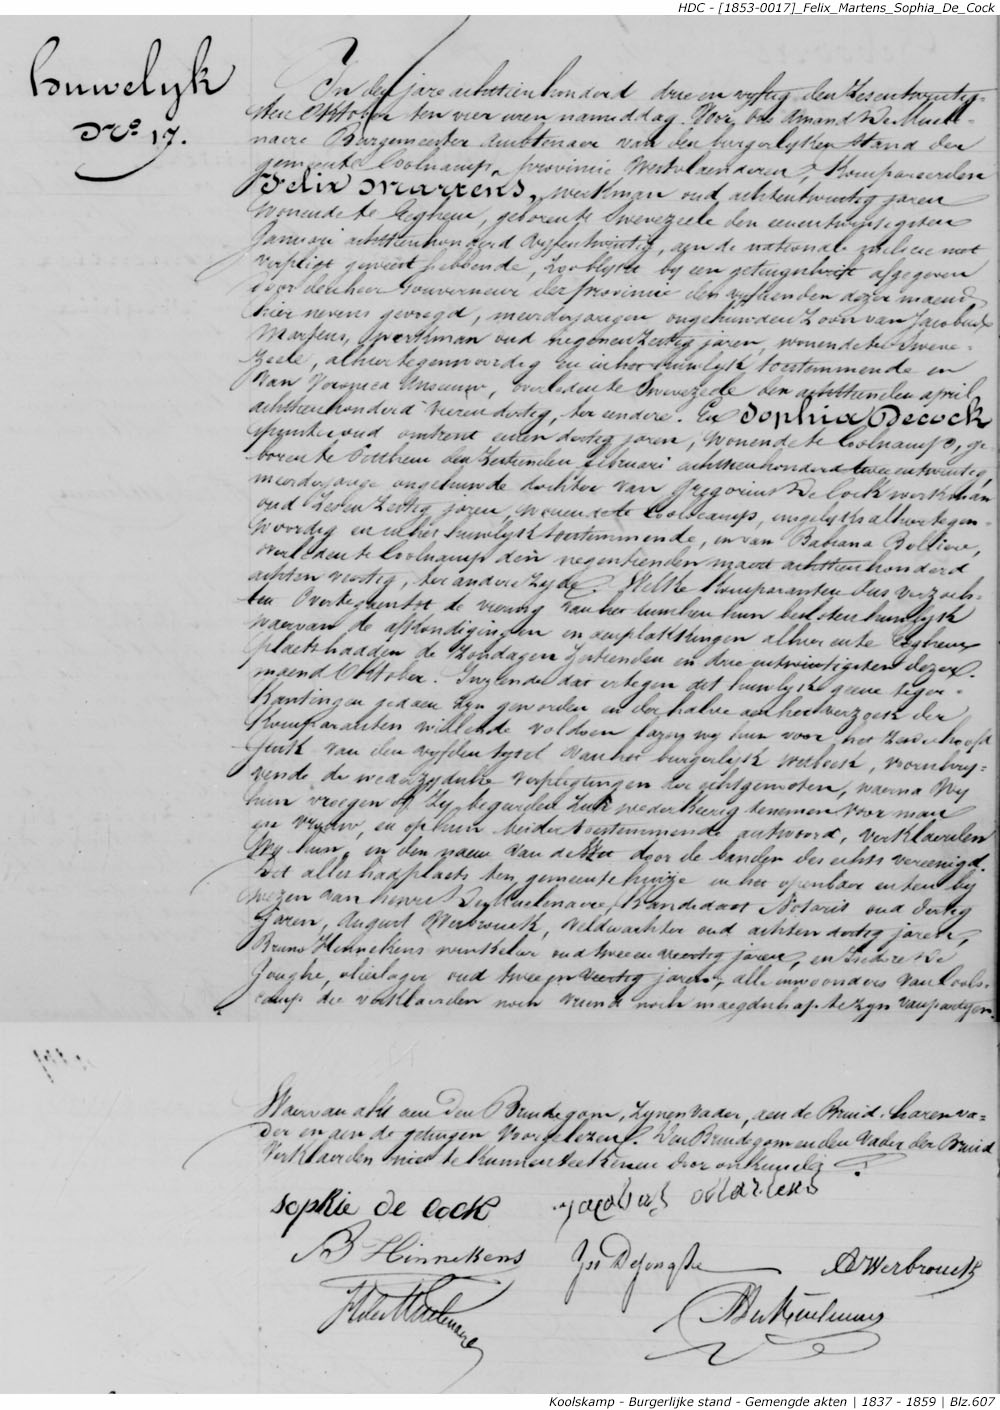 HDC - [1853-0017]_Felix_Martens_Sophia_De_Cock
huwelyk
Nro 17.
In den jare achttienhonderd drie en vyftig den Zesentwintig-
sten Oktober ten vier uren namiddag. Voor ons Amand De Meule-
naere Burgemeester Ambtenaer van den burgerlyken stand der
gemeente Coolscamp, provincie Westvlaenderen, Kompareerden
Felix Martens, werkman oud achtentwintig jaren
wonende te Eeghem, geboren te Swevezeele den eenentwintigsten
Januari achttienhonderd vyfentwintig, aen de nationale milicie met
verpligt geweest hebbende, zoo blykt by een getuigschrift afgegeven
door den heer Gouverneur der provincie den vyftienden dezer maend
hier nevens gevoegd, meerderjarigen ongehuwden Zoon van Jacobus
Martens, werkman oud negenenzestig jaren, wonende te Sweve-
zeele, alhier tegenwoordig en in het huwlyk toestemmende en
van Veronica , overleden te Swevezeele den achttienden april
achttienhonderd vierendertig, ter eendere. En Sophia Decock
oud omtrent eenendertig jaren, wonende te Coolscamp, ge-
boren te Pitthem den Zestienden februari achttienhonderd tweeentwintig,
meerderjarige ongehuwde dochter van Gregorius De Cock werkman
oud Zevenzestig jaren, wonende te Coolscamp, insgelyks alhier tegen-
woordig en in het huwlyk toestemmende, en van Babiana ,
overleden te Coolscamp den negentienden maert achttienhonderd
achtenveertig, ter andere zyde. Welke Komparanten ons verzoch-
ten Overtegaen tot de viering van het tusschen hun besloten huwlyk
waervan de afkondigingen en aenplakkingen alhier en te Eeghem
plaets hadden de Zondagen Zestienden en drieentwintigsten dezer
maend Oktober. Inziende dat er tegen dit huwlyk geene tegen-
kantingen gedaen zyn geworden en derhalve aen het verzoek der
Komparanten willende voldoen lazen wy hun voor het Zesde hoofd
stuk van den vyfden titel van het burgerlyk wetboek, voorschry-
vende de wederzydsche verpligtingen der echtgenoten, waerna Wy
hun vroegen of Zy begeerden Zich wederkeerig te nemen voor man
en vrouw, en op hun beider toestemmende antwoord, verklaerden
Wy hun, in den naem van de Wet door de banden des echts vereenigd.
Dit alles had plaets ten gemeentehuize in het openbaer en ten by
wezen van henri De Meulenaere, Kandidaet Notaris oud dertig
jaren, August Werbrouck, Veldwachter oud achtendertig jaren,
Bruno Hinnekens winkelier oud tweeenveertig jaren, en Isidore De
Jonghe, olieslager oud tweeenveertig jaren, alle inwoonders van Cools-
camp die verklaerden noch vriend noch maegdschap te zyn van partyen.
Waervan akt aen den Bruidegom, Zynen Vader, aen de Bruid, haren va-
der en aen de getuigen voorgelezen. Den Bruidegom en den Vader der Bruid
verklaerden niet te kunnen teekenen door onkunde.
sophie de cock Jacobus Martens
B Hinnekens Is Dejonghe A Werbrouck
H De Meulenaere A De Meulenaere
Koolskamp - Burgerlijke stand - Gemengde akten | 1837 - 1859 | Blz.607